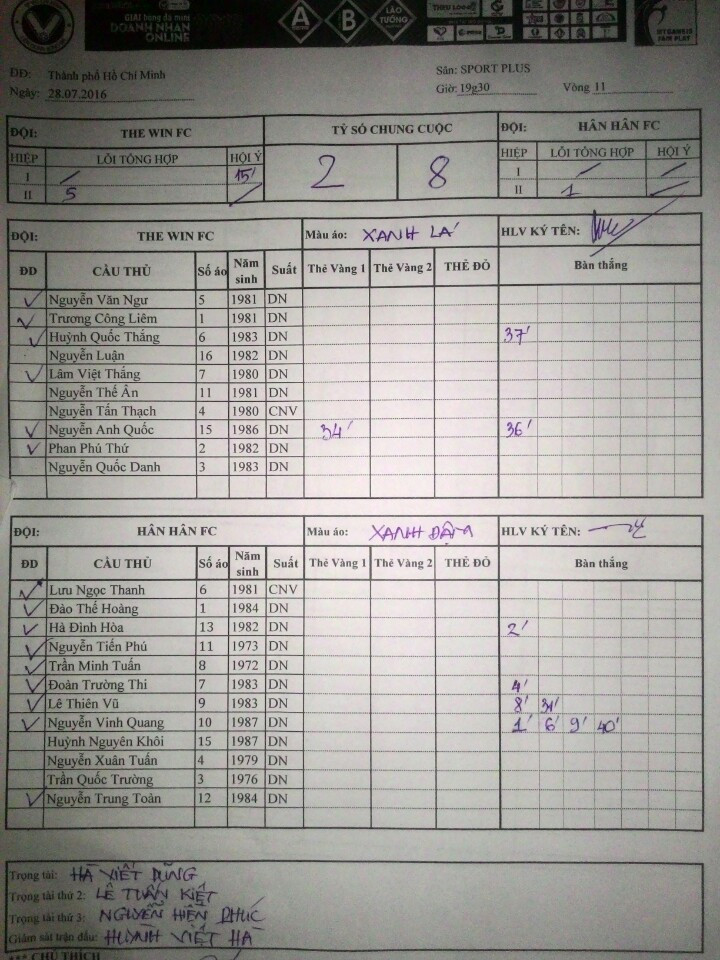 GIẢI bóng đá mini
DOANH NHÂN
ONLINE
A B LÃO TƯỚNG
ĐĐ: Thành phố Hồ Chí Minh Sân: SPORT PLUS
Ngày: 28.07.2016 Giờ: 19g30 Vòng 11
ĐỘI: THE WIN FC TỶ SỐ CHUNG CUỘC ĐỘI: HÂN HÂN FC
HIỆP LỖI TỔNG HỢP HỘI Ý 2 8 HIỆP LỖI TỔNG HỢP HỘI Ý
I 15' I
II 5 II 1
ĐỘI: THE WIN FC Màu áo: XANH LÁ HLV KÝ TÊN:
ĐD CẦU THỦ Số áo Năm sinh Suất Thẻ Vàng 1 Thẻ Vàng 2 THẺ ĐỎ Bàn thắng
Nguyễn Văn Ngư 5 1981 DN
Trương Công Liêm 1 1981 DN
Huỳnh Quốc Thắng 6 1983 DN 37'
Nguyễn Luận 16 1982 DN
Lâm Việt Thắng 7 1980 DN
Nguyễn Thế Ân 11 1981 DN
Nguyễn Tấn Thạch 4 1980 CNV
Nguyễn Anh Quốc 15 1986 DN 34' 36'
Phan Phú Thứ 2 1982 DN
Nguyễn Quốc Danh 3 1983 DN
ĐỘI: HÂN HÂN FC Màu áo: XANH ĐẬM HLV KÝ TÊN:
ĐD CẦU THỦ Số áo Năm sinh Suất Thẻ Vàng 1 Thẻ Vàng 2 THẺ ĐỎ Bàn thắng
Lưu Ngọc Thanh 6 1981 CNV
Đào Thế Hoàng 1 1984 DN
Hà Đình Hòa 13 1982 DN 2'
Nguyễn Tiến Phú 11 1973 DN
Trần Minh Tuấn 8 1972 DN
Đoàn Trường Thi 7 1983 DN 4'
Lê Thiên Vũ 9 1983 DN 8' 31'
Nguyễn Vinh Quang 10 1987 DN 1' 6' 9' 40'
Huỳnh Nguyên Khôi 15 1987 DN
Nguyễn Xuân Tuấn 4 1979 DN
Trần Quốc Trường 3 1976 DN
Nguyễn Trung Toàn 12 1984 DN
Trọng tài: HÀ VIẾT DŨNG
Trọng tài thứ 2: LÊ TUẤN KIỆT
Trọng tài thứ 3: NGUYỄN HIỀN PHÚC
Giám sát trận đấu: HUỲNH VIỆT HÀ
*** CHÚ THÍCH